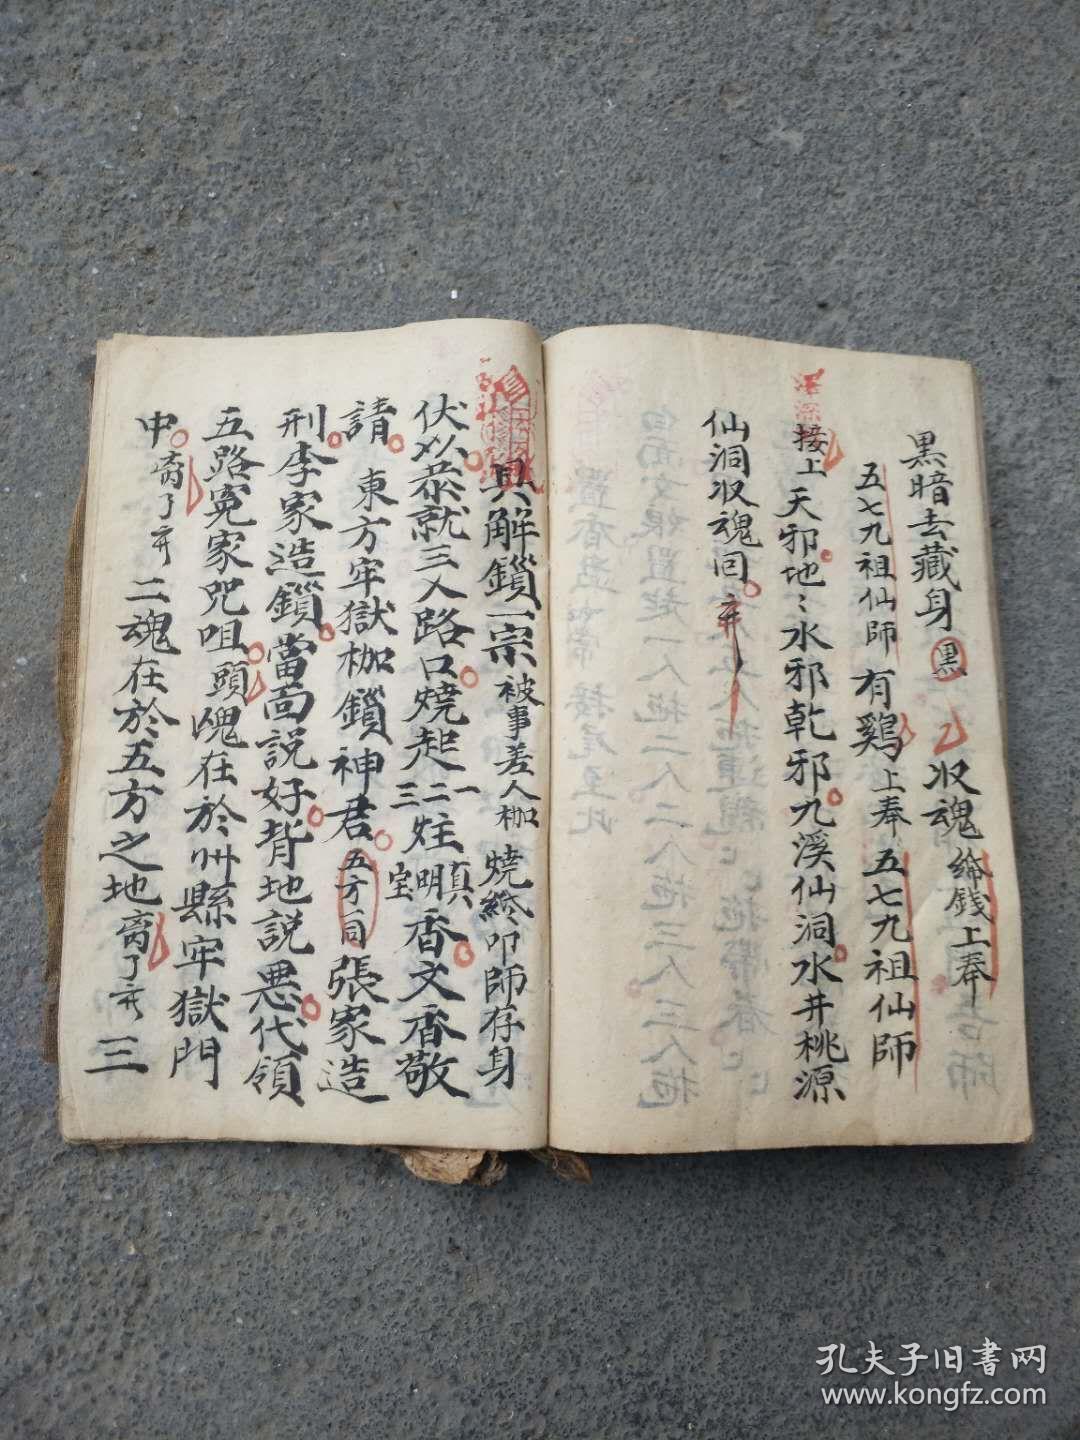 黑暗去藏身 黑 収魂 給錢上奉
五七九祖仙師 有鷄上奉 五七九祖仙師
接上 天邪地〻水邪乾邪九溪仙洞水井桃源
仙洞収魂囘
具解鎖一宗 被事差人枷 燒給叩師存身
伏以恭就三人路口燒起一二三炷真明宝香文香敬
請 東方牢獄枷鎖神君 五方同 張家造
刑李家造鎖當面說好背地說悪代領
五路冤家咒咀頭魂在於州縣牢獄門
中 离了 二魂在於五方之地 离了 三
孔夫子旧書网
www.kongfz.com